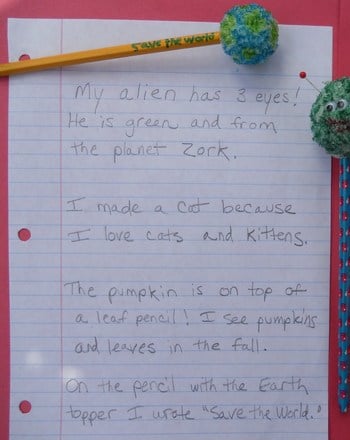 Save the World
My alien has 3 eyes!
He is green and from
the planet Zork.
I made a cat because
I love cats and kittens.
The pumpkin is on top of
a leaf pencil! I see pumpkins
and leaves in the fall.
On the pencil with the Earth
topper I wrote "Save the World."